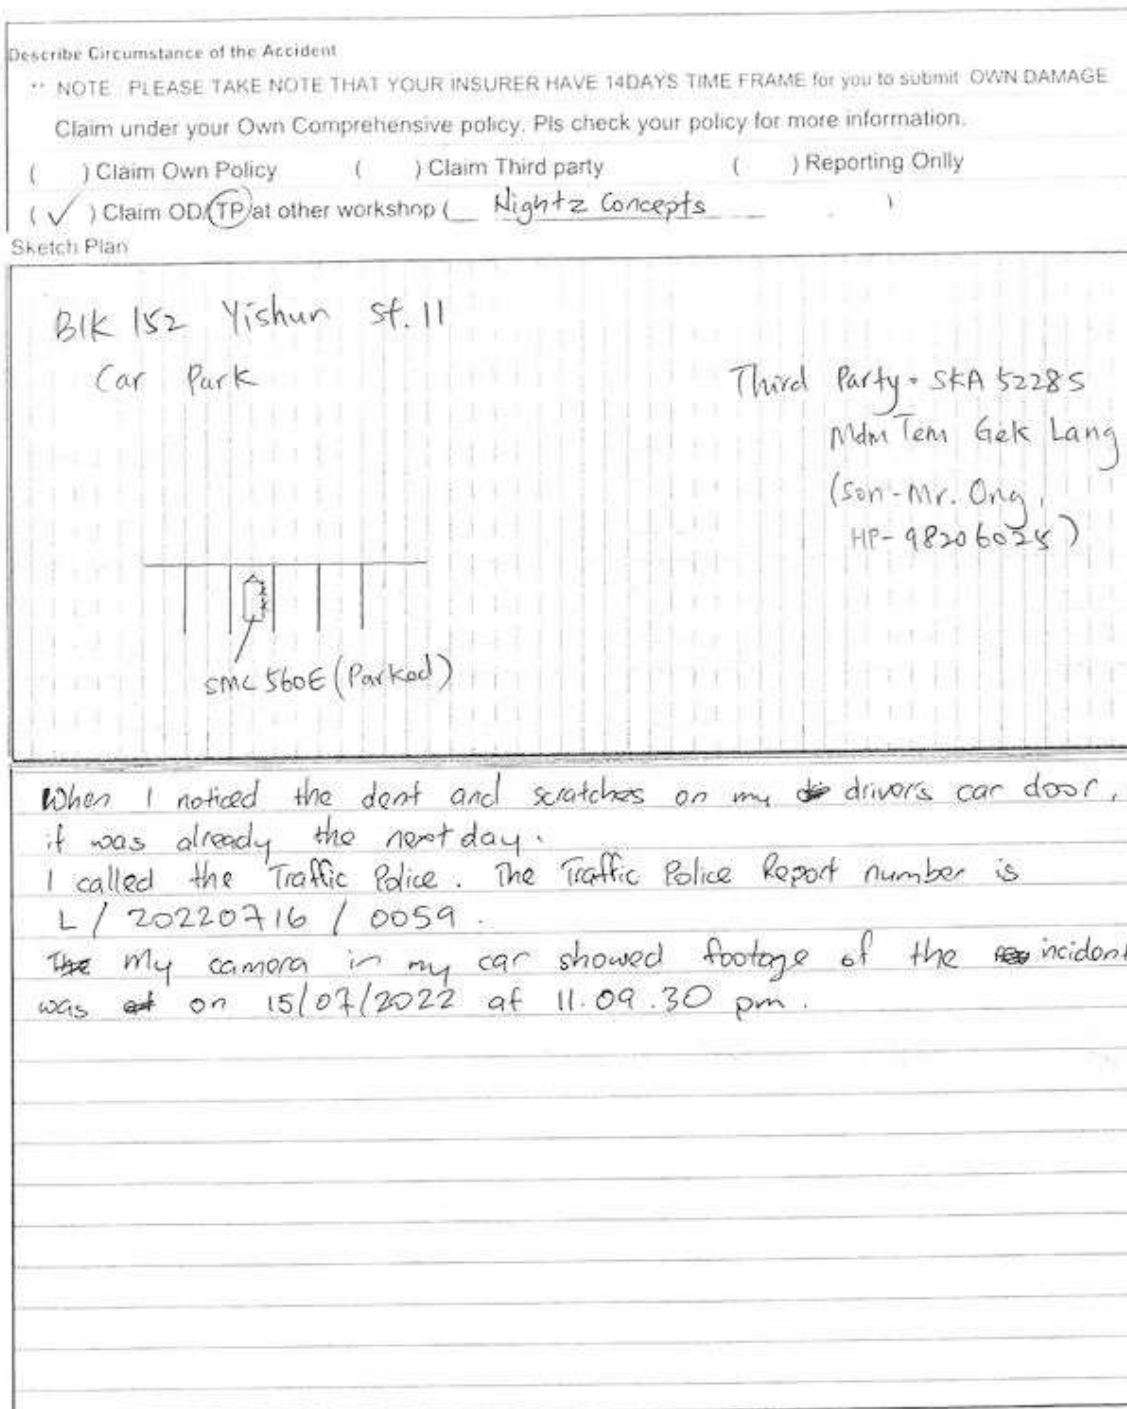 Describe Circumstance of the Accident
** NOTE : PLEASE TAKE NOTE THAT YOUR INSURER HAVE 14DAYS TIME FRAME for you to submit OWN DAMAGE
Claim under your Own Comprehensive policy. Pls check your policy for more information.
( ) Claim Own Policy ( ) Claim Third party ( ) Reporting Onlly
( ✓ ) Claim OD/TP/at other workshop ( Nightz Concepts )
Sketch Plan
Blk 152 Yishun St. 11
Car Park
Third Party - SKA 5228S
Mdm Tem Gek Lang
(Son - Mr. Ong,
HP - 98206025)
SML 560E (Parked)
When I noticed the dent and scratches on my drivers car door,
it was already the next day.
I called the Traffic Police. The Traffic Police Report number is
L / 20220716 / 0059.
My camera in my car showed footage of the incident
was on 15/07/2022 at 11.09.30 pm.